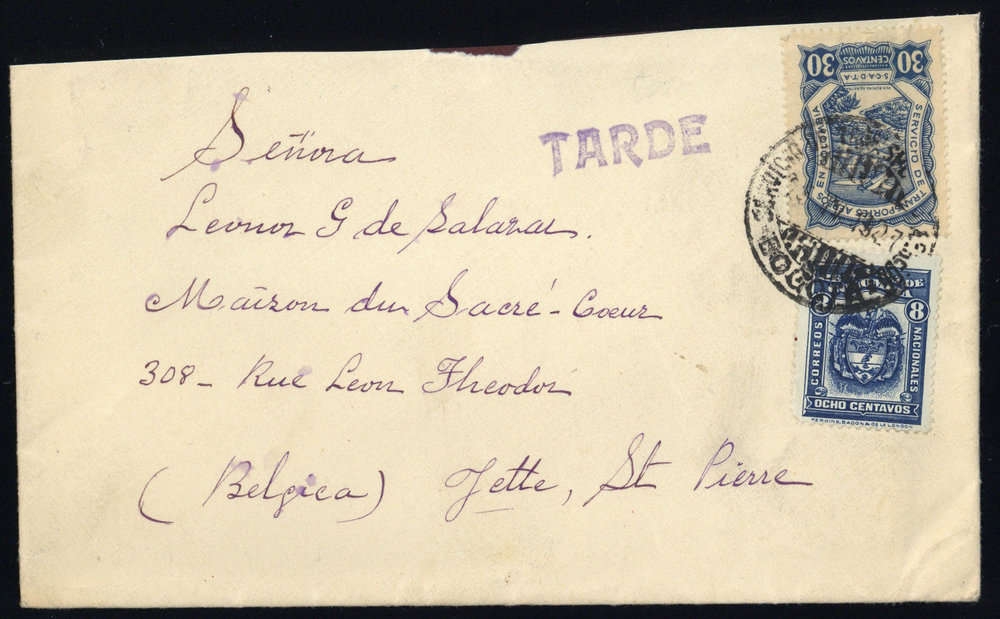 Señora
Leonor G de Salazar.
Maison du Sacré-Coeur
308- Rue Leon Theodor
(Belgica) Jette, St Pierre
TARDE
30 CENTAVOS 30
S·C·A·D·T·A
SERVICIO DE TRANSPORTES AEREOS EN
1927
BOGOTA
DE
8
CORREOS NACIONALES
OCHO CENTAVOS
LONDON